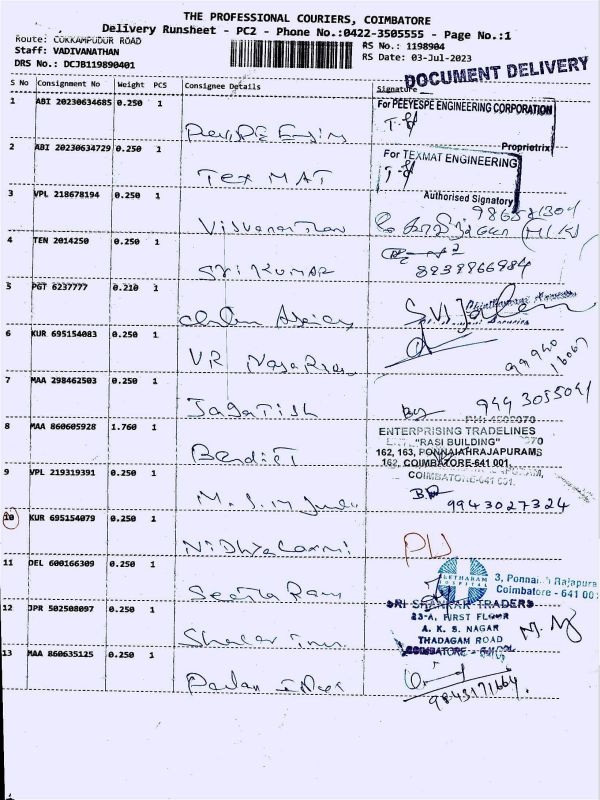 THE PROFESSIONAL COURIERS, COIMBATORE
Delivery Runsheet - PC2 - Phone No.:0422-3505555 - Page No.:1
Route: COKKAMPUDUR ROAD
RS No.: 1198904
Staff: VADIVANATHAN
RS Date: 03-Jul-2023
DRS No.: DCJB119890401
DOCUMENT DELIVERY
S No Consignment No Weight PCS Consignee Details Signature
1 ABI 20230634685 0.250 1
For PEEYESPE ENGINEERING CORPORATION
Proprietrix
2 ABI 20230634729 0.250 1 TEX MAT
For TEXMAT ENGINEERING
Authorised Signatory
3 VPL 218678194 0.250 1
4 TEN 2014250 0.250 1 Sri KUMAR
8939866984
5 PGT 6237777 0.210 1
6 KUR 695154083 0.250 1 VR
99940
16067
7 MAA 298462503 0.250 1 Jagatish
944 3055041
8 MAA 860605928 1.760 1
ENTERPRISING TRADELINES
"RASI BUILDING"
162, 163, PONNAIAHRAJAPURAMS
162, COIMBATORE-641 001.
9 VPL 219319391 0.250 1
9943027324
10 KUR 695154079 0.250 1 NIDHYALAXMI
PU
11 DEL 600166309 0.250 1 Seetha Ram
3, Ponnai Rajapura
Coimbatore - 641 00
12 JPR 502508097 0.250 1
SRI SHANKAR TRADERS
23-A, FIRST FLOOR
A. K. S. NAGAR
THADAGAM ROAD
COIMBATORE
13 MAA 860635125 0.250 1
9843171664.